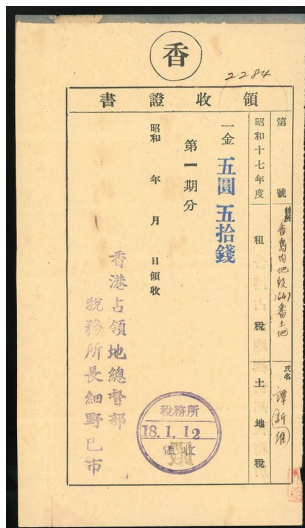 香
2284
領收證書
第 號
香島內地段1667番土地
氏名
譚新維
昭和十七年度 租稅 土地稅
一金 五圓五拾錢
第一期分
昭和 年 月 日領收
香港占領地總督部
稅務所長細野巳市
稅務所
18.1.12
領收